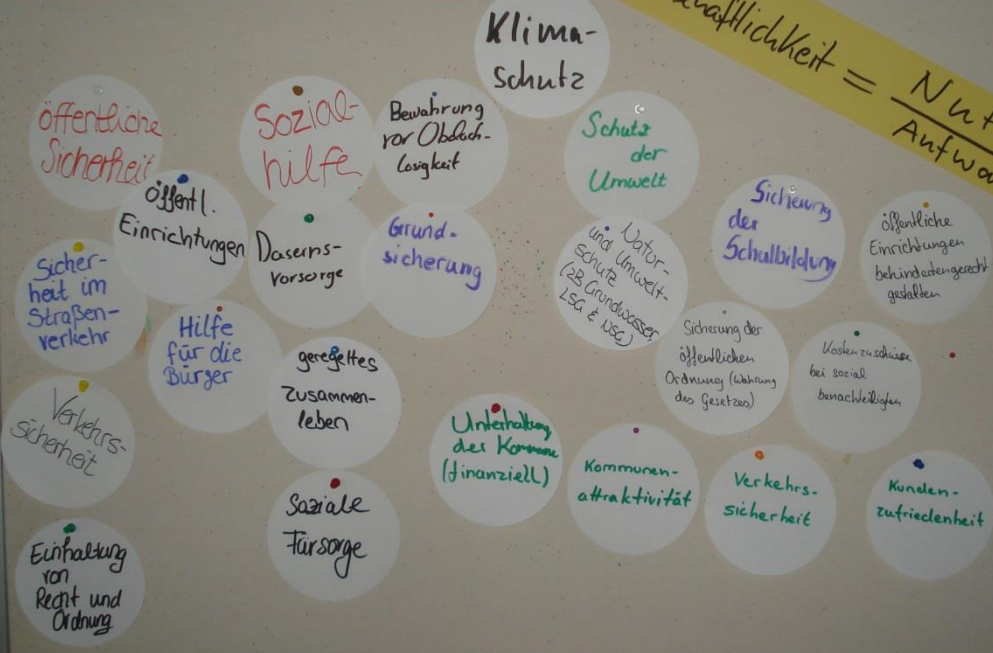 Klima-
schutz
haftlichkeit = Nut
Aufwa
öffentliche
Sicherheit
Sozial-
hilfe
Bewahrung
vor Obdach-
losigkeit
Schutz
der
Umwelt
öffentl.
Einrichtungen
Daseins-
vorsorge
Grund-
sicherung
Natur-
und Umwelt-
schutz
(zB Grundwasser,
LSG & NSG)
Sicherung
der
Schulbildung
öffentliche
Einrichtungen
behindertengerecht
gestalten
Sicher-
heit im
Straßen-
verkehr
Hilfe
für die
Bürger
geregeltes
Zusammen-
leben
Sicherung der
öffentlichen
Ordnung (Wahrung
des Gesetzes)
Kostenzuschüsse
bei sozial
benachteiligten
Verkehrs-
sicherheit
Unterhaltung
der Kommune
(finanziell)
Kommunen-
attraktivität
Verkehrs-
sicherheit
Kunden-
zufriedenheit
Soziale
Fürsorge
Einhaltung
von
Recht und
Ordnung